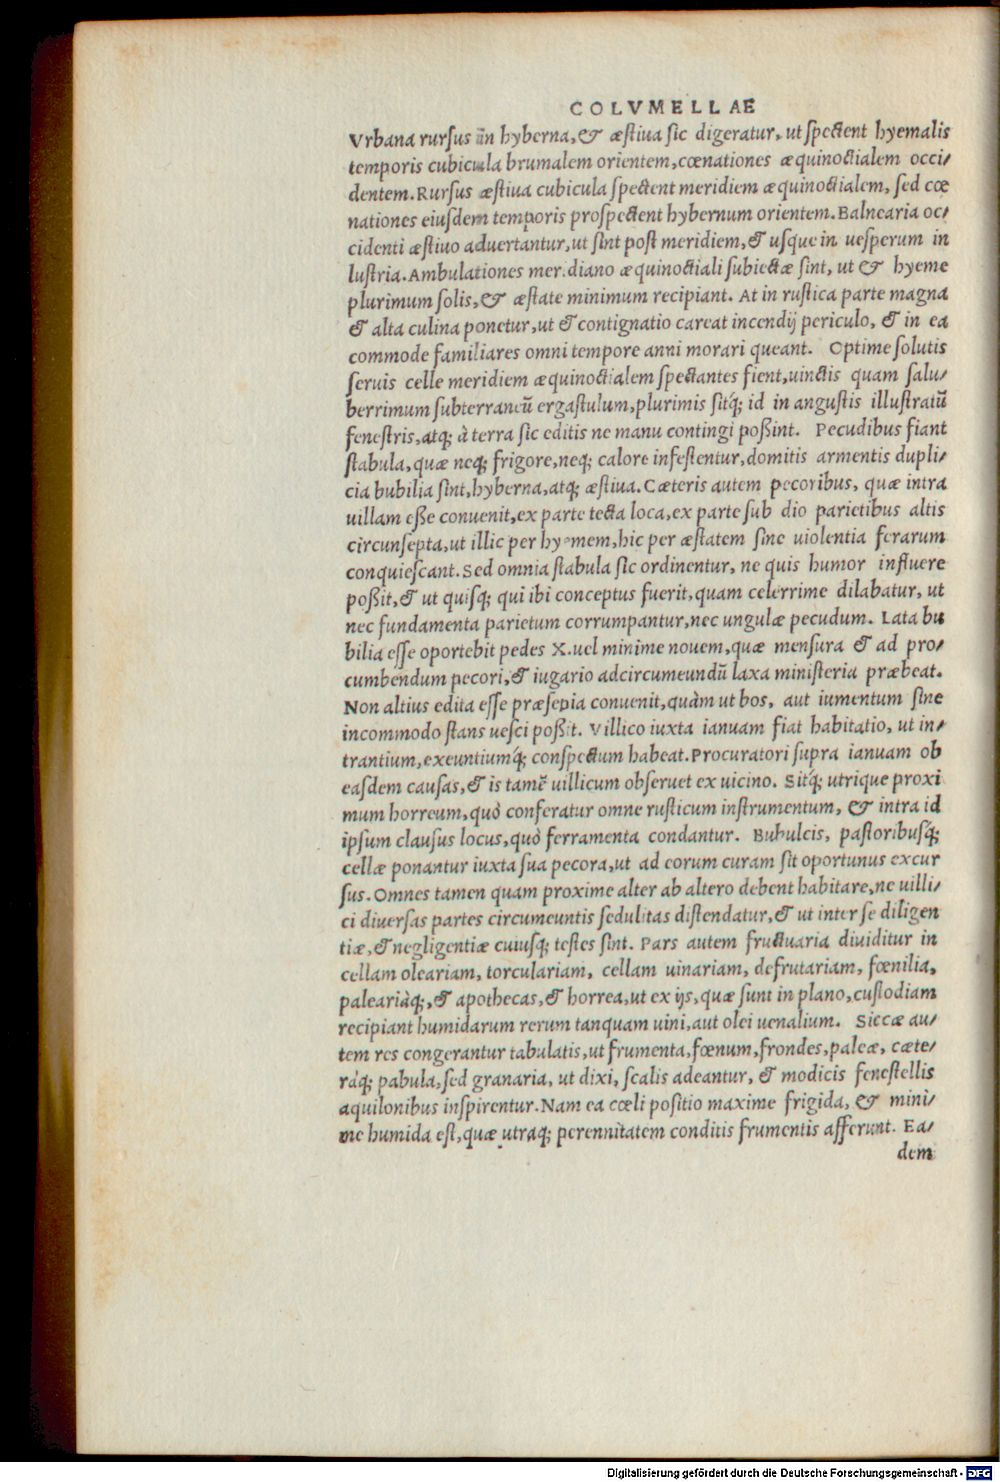 COLVMELLAE
Vrbana rursus in hyberna, & æstiua sic digeratur, ut spectent hyemalis
temporis cubicula brumalem orientem, cœnationes æquinoctialem occi/
dentem. Rursus æstiua cubicula spectent meridiem æquinoctialem, sed cœ
nationes eiusdem temporis prospectent hybernum orientem. Balnearia oc/
cidenti æstiuo aduertantur, ut sint post meridiem, & usque in uesperum in
lustria. Ambulationes meridiano æquinoctiali subiectæ sint, ut & hyeme
plurimum solis, & æstate minimum recipiant. At in rustica parte magna
& alta culina ponetur, ut & contignatio careat incendij periculo, & in ea
commode familiares omni tempore anni morari queant. Optime solutis
seruis celle meridiem æquinoctialem spectantes fient, uinctis quam salu/
berrimum subterraneū ergastulum, plurimis sitq́; id in angustis illustratū
fenestris, atq; à terra sic editis ne manu contingi poßint. Pecudibus fiant
stabula, quæ neq; frigore, neq; calore infestentur, domitis armentis dupli/
cia bubilia sint, hyberna, atq; æstiua. Cæteris autem pecoribus, quæ intra
uillam eße conuenit, ex parte tecta loca, ex parte sub dio parietibus altis
circunsepta, ut illic per hyemem, hic per æstatem sine uiolentia ferarum
conquiescant. Sed omnia stabula sic ordinentur, ne quis humor influere
poßit, & ut quisq; qui ibi conceptus fuerit, quam celerrime dilabatur, ut
nec fundamenta parietum corrumpantur, nec ungulæ pecudum. Lata bu
bilia esse oportebit pedes X. uel minime nouem, quæ mensura & ad pro/
cumbendum pecori, & iugario adcircumeundū laxa ministeria præbeat.
Non altius edita esse præsepia conuenit, quàm ut bos, aut iumentum sine
incommodo stans uesci poßit. Villico iuxta ianuam fiat habitatio, ut in/
trantium, exeuntiumq́; conspectum habeat. Procuratori supra ianuam ob
easdem causas, & is tamē uillicum obseruet ex uicino. Sitq́; utrique proxi
mum horreum, quò conferatur omne rusticum instrumentum, & intra id
ipsum clausus locus, quò ferramenta condantur. Bubulcis, pastoribusq́;
cellæ ponantur iuxta sua pecora, ut ad eorum curam sit oportunus excur
sus. Omnes tamen quam proxime alter ab altero debent habitare, ne uilli/
ci diuersas partes circumeuntis sedulitas distendatur, & ut inter se diligen
tiæ, & negligentiæ cuiusq; testes sint. Pars autem fructuaria diuiditur in
cellam oleariam, torculariam, cellam uinariam, defrutariam, fœnilia,
paleariàq;, & apothecas, & horrea, ut ex ijs, quæ sunt in plano, custodiam
recipiant humidarum rerum tanquam uini, aut olei uenalium. Siccæ au/
tem res congerantur tabulatis, ut frumenta, fœnum, frondes, paleæ, cæte/
ràq; pabula, sed granaria, ut dixi, scalis adeantur, & modicis fenestellis
aquilonibus inspirentur. Nam ea cœli positio maxime frigida, & mini/
me humida est, quæ utraq; perennitatem conditis frumentis afferunt. Ea/
dem
Digitalisierung gefördert durch die Deutsche Forschungsgemeinschaft - DFG